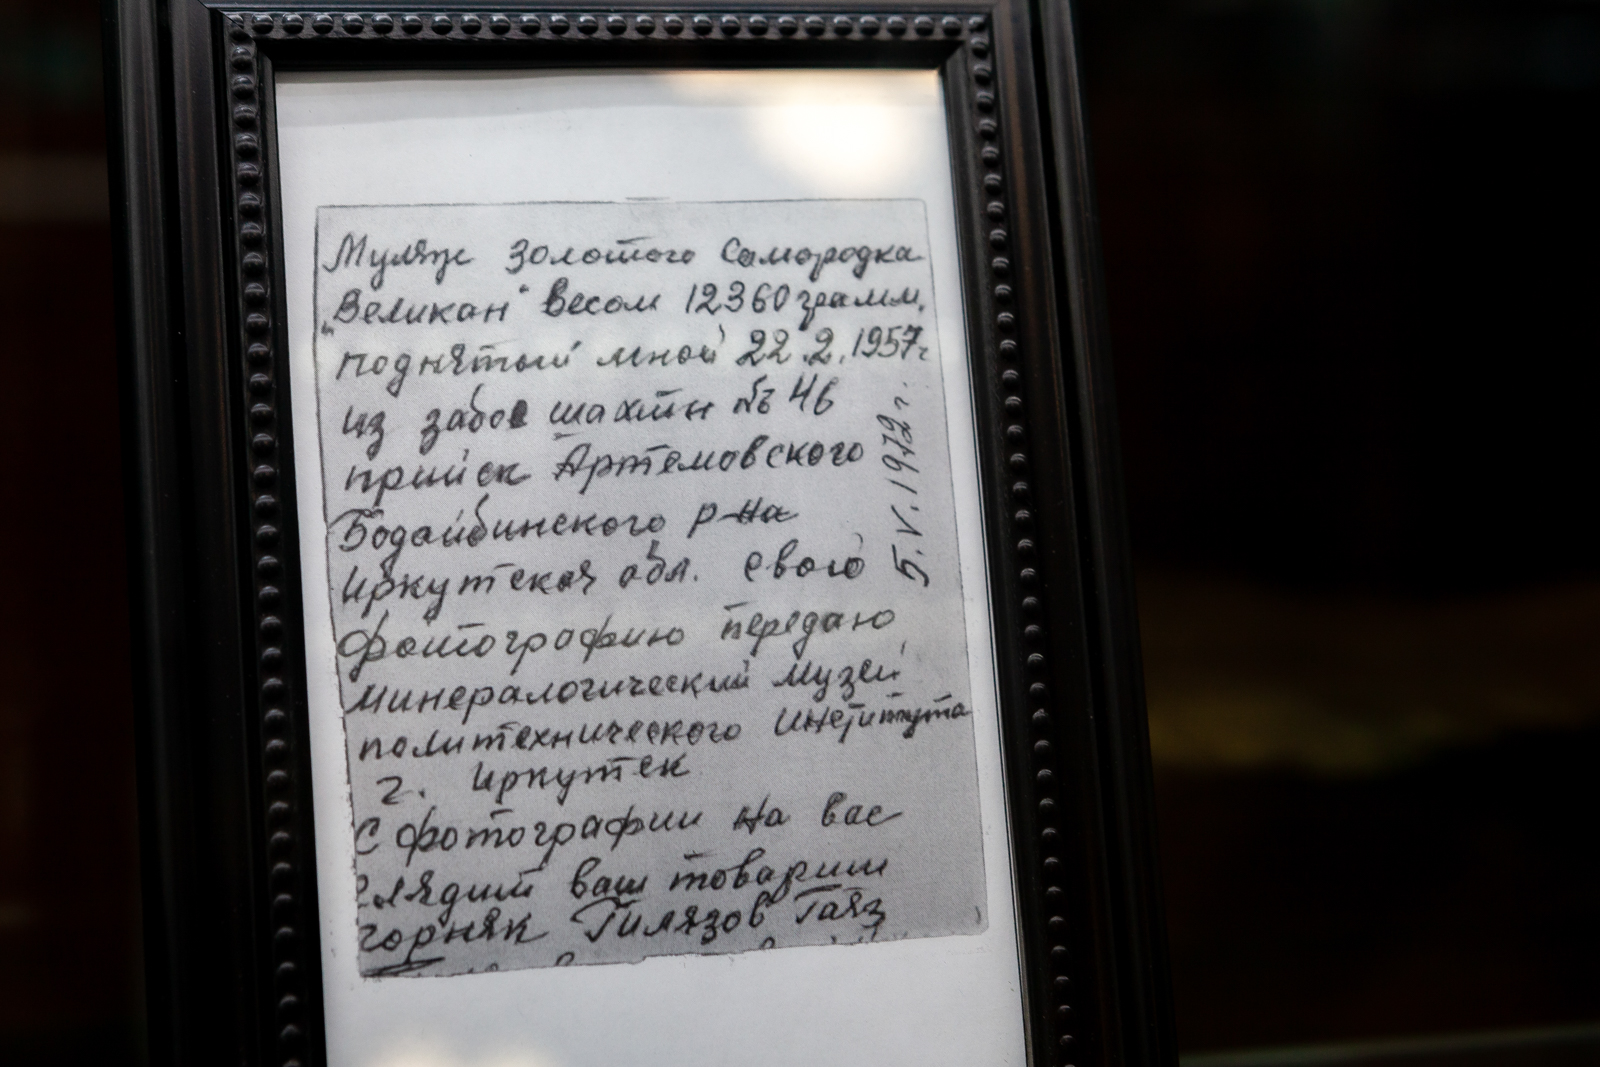 Муляж золотого самородка
„Великан" весом 12360 грамм,
поднятый мной 22.2.1957г
из забоя шахты № 46
прииск Артемовского
Бодайбинского р-на
Иркутская обл. свою
фотографию передаю
минералогический музей
политехнического института
г. Иркутск
С фотографии на вас
глядит ваш товарищ
горняк Гилязов Гаяз
5.V.1972 г.